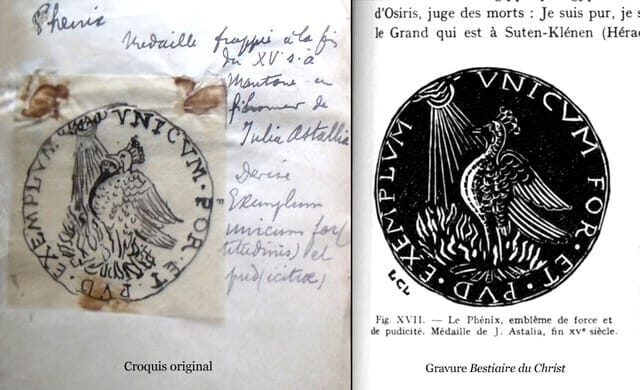 Phénix
Médaille frappée à la fin
du XVe s. à
Mantoue en
l'honneur de
Julia Astallia
Devise
Exemplum
unicum for(
titudinis) et
pud(icitiae)
EXEMPLVM · VNICVM · FOR · ET · PVD ·
Croquis original
d'Osiris, juge des morts : Je suis pur, je s
le Grand qui est à Suten-Klénen (Héra
EXEMPLVM VNICVM FOR · ET · PVD ·
LCL
Fig. XVII. — Le Phénix, emblème de force et
de pudicité. Médaille de J. Astalia, fin XVe siècle.
Gravure Bestiaire du Christ